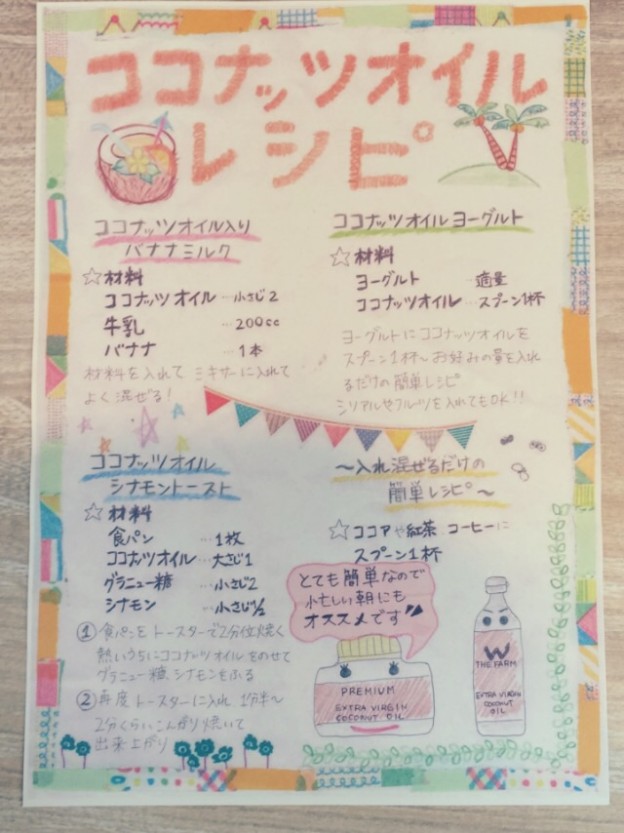 ココナッツオイル
レシピ
ココナッツオイル入り
バナナミルク
☆材料
ココナッツオイル…小さじ2
牛乳…200cc
バナナ…1本
材料を入れて ミキサーに入れて
よく混ぜる!
ココナッツオイルヨーグルト
☆材料
ヨーグルト…適量
ココナッツオイル…スプーン1杯
ヨーグルトにココナッツオイルを
スプーン1杯〜お好みの量を入れ
るだけの簡単レシピ
シリアルやフルーツを入れてもOK!!
ココナッツオイル
シナモントースト
☆材料
食パン…1枚
ココナッツオイル…大さじ1
グラニュー糖…小さじ2
シナモン…小さじ1/2
①食パンをトースターで2分位焼く
熱いうちにココナッツオイルをのせて
グラニュー糖、シナモンをふる
②再度トースターに入れ 1分半〜
2分くらいこんがり焼いて
出来上がり
〜入れ混ぜるだけの
簡単レシピ〜
☆ココアや紅茶、コーヒーに
スプーン1杯
とても簡単なので
忙しい朝にも
オススメです
PREMIUM
EXTRA VIRGIN
COCONUT OIL
W
THE FARM
EXTRA VIRGIN
COCONUT
OIL